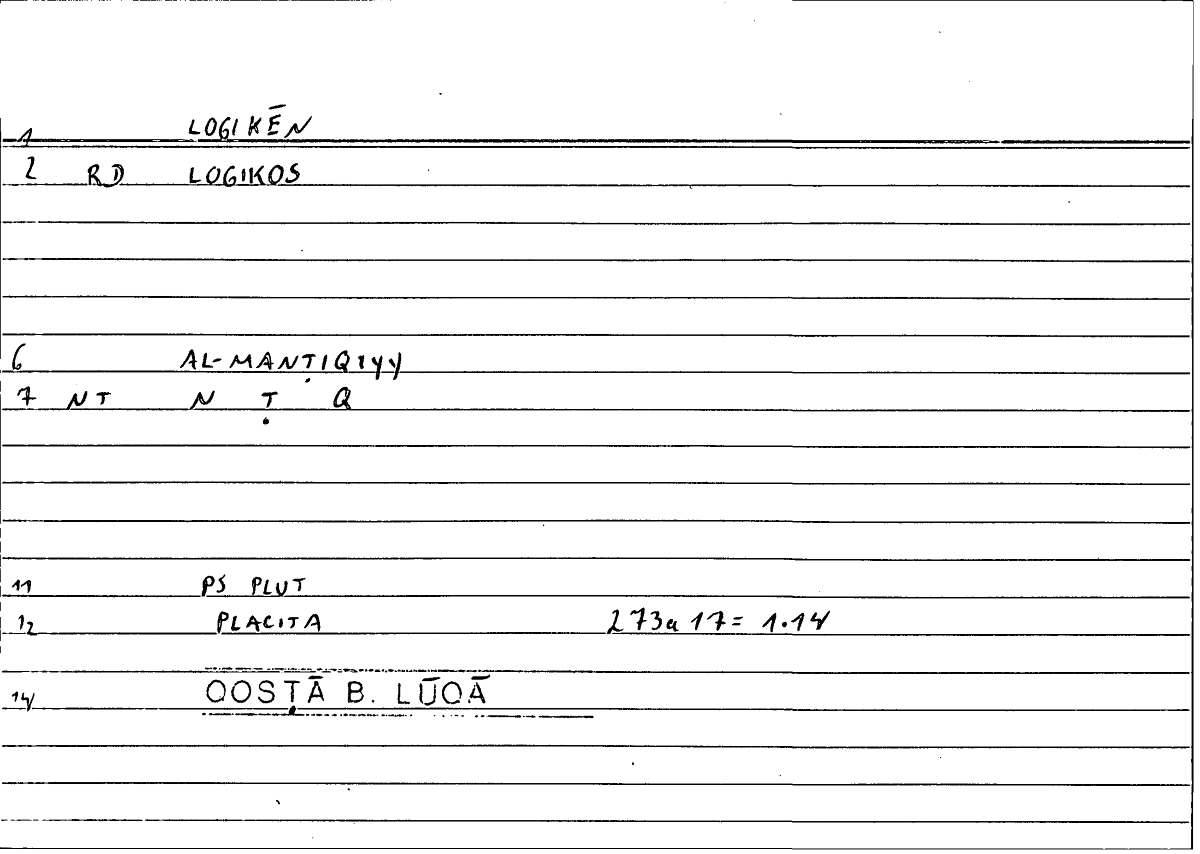 1 LOGIKĒN
2 RD LOGIKOS
6 AL-MANṬIQIYY
7 NT N Ṭ Q
11 PS PLUT
12 PLACITA 273a 17 = 1.14
14 QOSṬĀ B. LŪQĀ